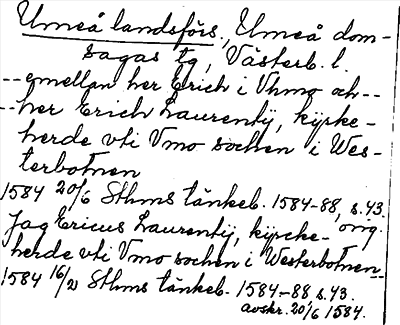 Umeå landsförs., Umeå dom-
sagas tg, Västerb. l.
--emellan her Erich i Vhmo och--
--her Erich Laurentij, kyrke-
herde vti Vmo sochen i Wes-
terbotnen
1584 20/6 Sthms tänkeb. 1584-88, s.43.
orig.
Jag Ericus Laurentij, kyrcke-
herde vti Vmo sochen i Westerbotnen--
1584 16/2 Sthms tänkeb. 1584-88 s.43.
avskr. 20/6 1584.